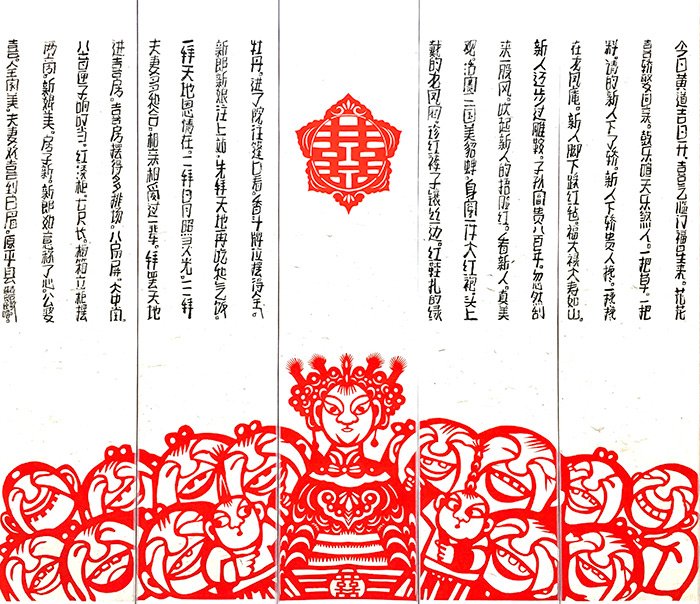 今日黄道吉日开。喜气临门福星来。花花
喜轿娶回家。鼓乐喧天乐煞人。一把草。一把
料。请的新人下了轿。新人下轿贵人搀。一搀搀
在龙凤庵。新人脚下踩红毡。福大禄大寿如山。
新人迈步过雕鞍。子孙富贵八百年。忽然刮
来一股风。吹起新人的捂脸红。看新人。真美
三国美貌蝉。身 一件大红袍。头上
戴的龙凤冠。 红裤子镶丝边。红鞋扎的绿
囍
牡丹。进了院往这边看。香斗牌位摆得全。
新郎新娘往上站。先拜天地再吃 饭。
一拜天地恩情在。二拜日月照 光。三拜
夫妻多和合。相亲相爱过一辈。拜罢天地
进喜房。喜房摆得多排场。八扇屏。大中堂。
八音匣子响叮当。红漆柜。七尺长。 箱立柜摆
两 。新娘美。房子新。新郎如意称了心。公婆
喜。全家美。夫妻欢喜到白眉。原平县
囍